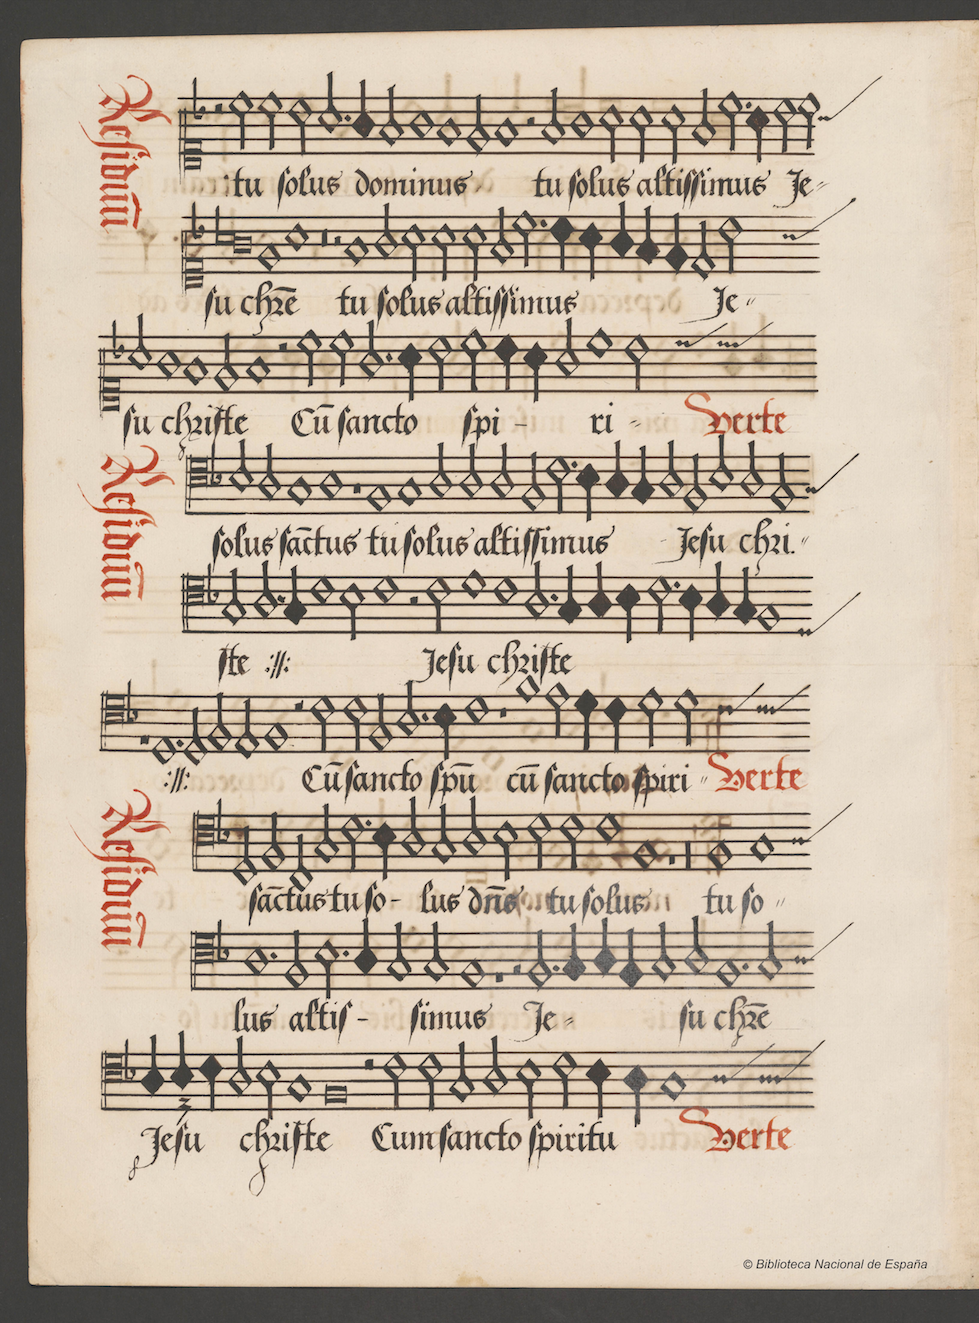 Residuū
tu solus dominus tu solus altissimus Je-
su chrē tu solus altissimus Je-
su christe Cū sancto spi - ri - Verte
Residuū
solus sāctus tu solus altissimus Jesu chri-
ste :||: Jesu christe
:||: Cū sancto spū cū sancto spiri - Verte
Residuū
sāctus tu so- lus dn̄s tu solus tu so-
lus altis - simus Je- su chrē
Jesu christe Cum sancto spiritu Verte
© Biblioteca Nacional de España